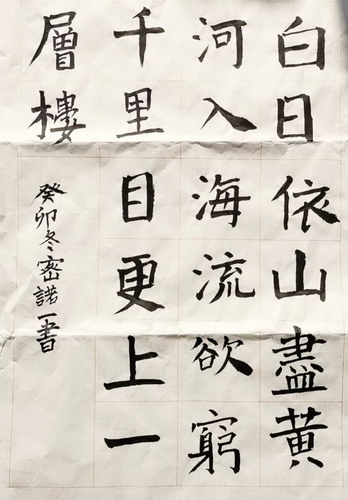 白日依山盡黄
河入海流欲窮
千里目更上一
層樓
癸卯冬密諾一書